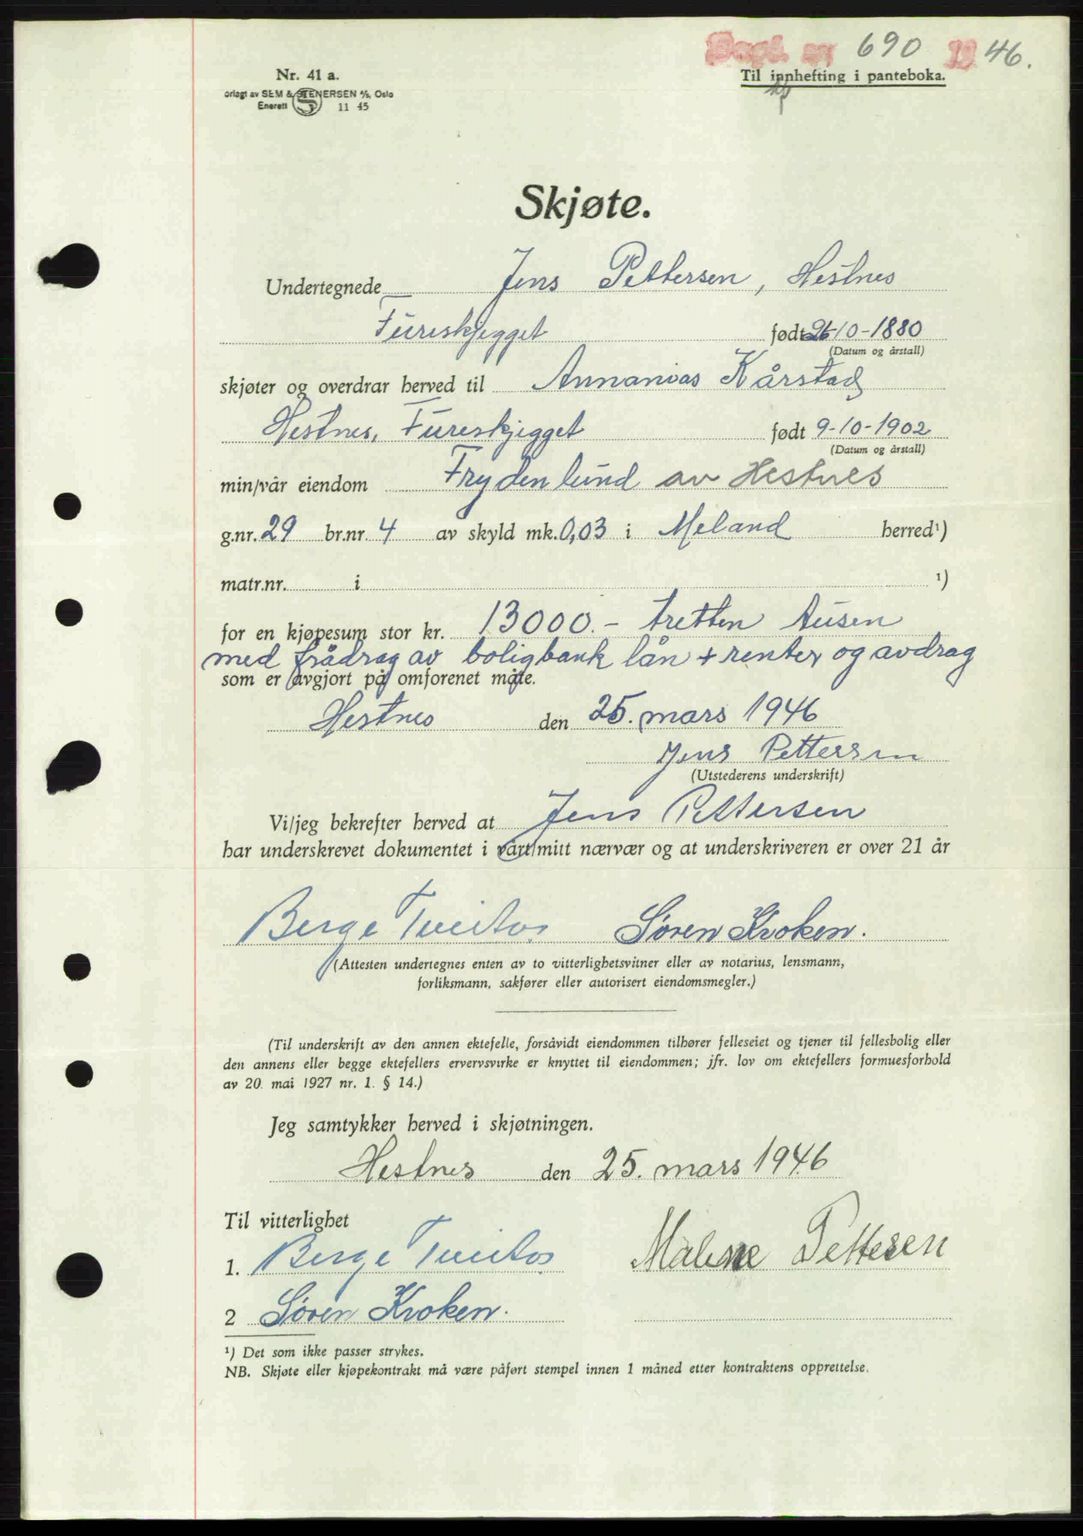 Dagb. nr 690 1946.
Nr. 41 a.
Til innhefting i panteboka.
orlagt av SEM & STENERSEN A/S, Oslo
Enerett S 11 45
Skjøte.
Undertegnede Jens Pettersen, Hestnes
Füreskjegget født 26-10-1880
(Datum og årstall)
skjøter og overdrar herved til Annanias Kårstad
Hestnes, Füreskjegget født 9-10-1902
(Datum og årstall)
min/vår eiendom Frydenlund av Hestnes
g.nr. 29 br.nr. 4 av skyld mk. 0,03 i Meland herred¹)
matr.nr. i ¹)
for en kjøpesum stor kr. 13000.- tretten tusen
med frådrag av boligbank lån + renter og avdrag
som er avgjort på omforenet måte.
Hestnes den 25. mars 1946
Jens Pettersen
(Utstederens underskrift)
Vi/jeg bekrefter herved at Jens Pettersen
har underskrevet dokumentet i vårt/mitt nærvær og at underskriveren er over 21 år
Berge Tveitos Søren Kroken.
(Attesten undertegnes enten av to vitterlighetsvitner eller av notarius, lensmann,
forliksmann, sakfører eller autorisert eiendomsmegler.)
(Til underskrift av den annen ektefelle, forsåvidt eiendommen tilhører felleseiet og tjener til fellesbolig eller
den annens eller begge ektefellers ervervsvirke er knyttet til eiendommen; jfr. lov om ektefellers formuesforhold
av 20. mai 1927 nr. 1. § 14.)
Jeg samtykker herved i skjøtningen.
Hestnes den 25. mars 1946
Til vitterlighet
1. Berge Tveitos Malene Pettesen
2 Søren Kroken.
¹) Det som ikke passer strykes.
NB. Skjøte eller kjøpekontrakt må være påført stempel innen 1 måned etter kontraktens opprettelse.